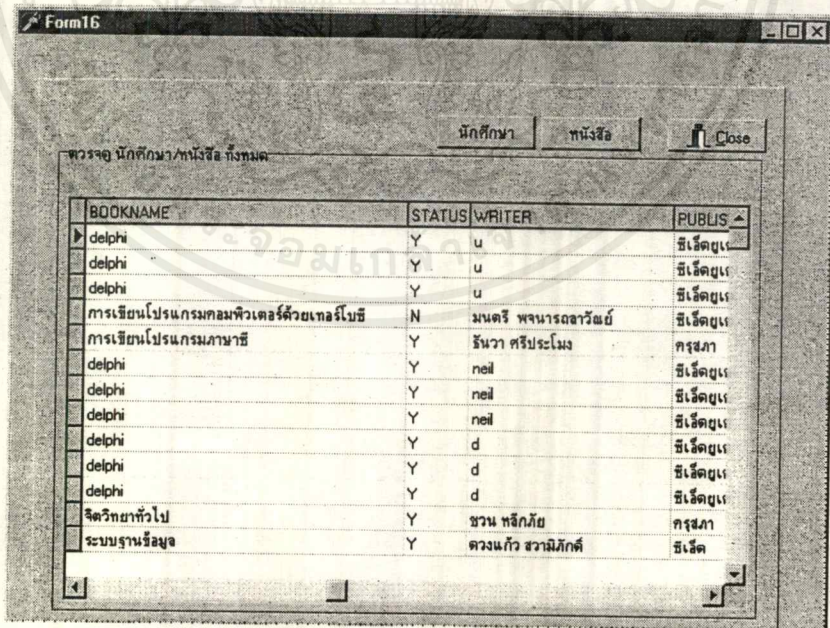 Form16
นักศึกษา หนังสือ Close
ตรวจดู นักศึกษา/หนังสือ ทั้งหมด
BOOKNAME STATUS WRITER PUBLIS
delphi Y u ซีเอ็ดยูเ
delphi Y u ซีเอ็ดยูเ
delphi Y u ซีเอ็ดยูเ
การเขียนโปรแกรมคอมพิวเตอร์ด้วยเทอร์โบซี N มนตรี พจนารถลาวัณย์ ซีเอ็ดยูเ
การเขียนโปรแกรมภาษาซี Y ธันวา ศรีประโมง คุรุสภา
delphi Y neil ซีเอ็ดยูเ
delphi Y neil ซีเอ็ดยูเ
delphi Y neil ซีเอ็ดยูเ
delphi Y d ซีเอ็ดยูเ
delphi Y d ซีเอ็ดยูเ
delphi Y d ซีเอ็ดยูเ
จิตวิทยาทั่วไป Y ชวน หลีกภัย คุรุสภา
ระบบฐานข้อมูล Y ดวงแก้ว สวามิภักดิ์ ซีเอ็ด